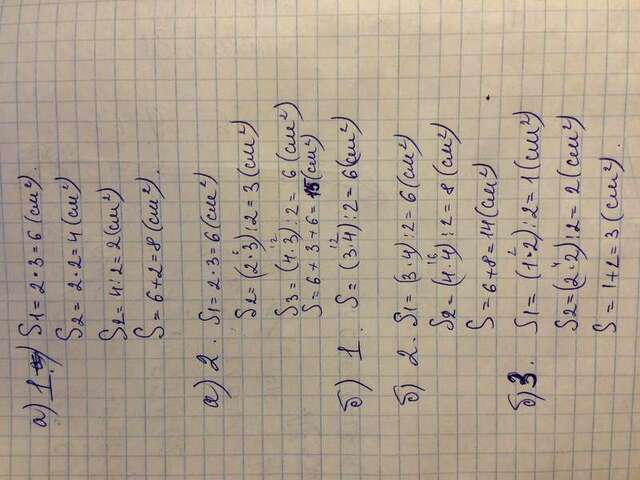 а) 1. S1 = 2·3 = 6 (см²).
S2 = 2·2 = 4 (см²)
S2 = 4:2 = 2 (см²)
S = 6+2 = 8 (см²).
а) 2. S1 = 2·3 = 6 (см²)
6
S2 = (2·3):2 = 3 (см²)
12
S3 = (4·3):2 = 6 (см²)
S = 6+3+6 = 15 (см²)
12
б) 1. S = (3·4):2 = 6 (см²)
б) 2. S1 = (3·4):2 = 6 (см²)
16
S2 = (4·4):2 = 8 (см²)
S = 6+8 = 14 (см²)
2
б) 3. S1 = (1·2):2 = 1 (см²)
4
S2 = (2·2):2 = 2 (см²)
S = 1+2 = 3 (см²).